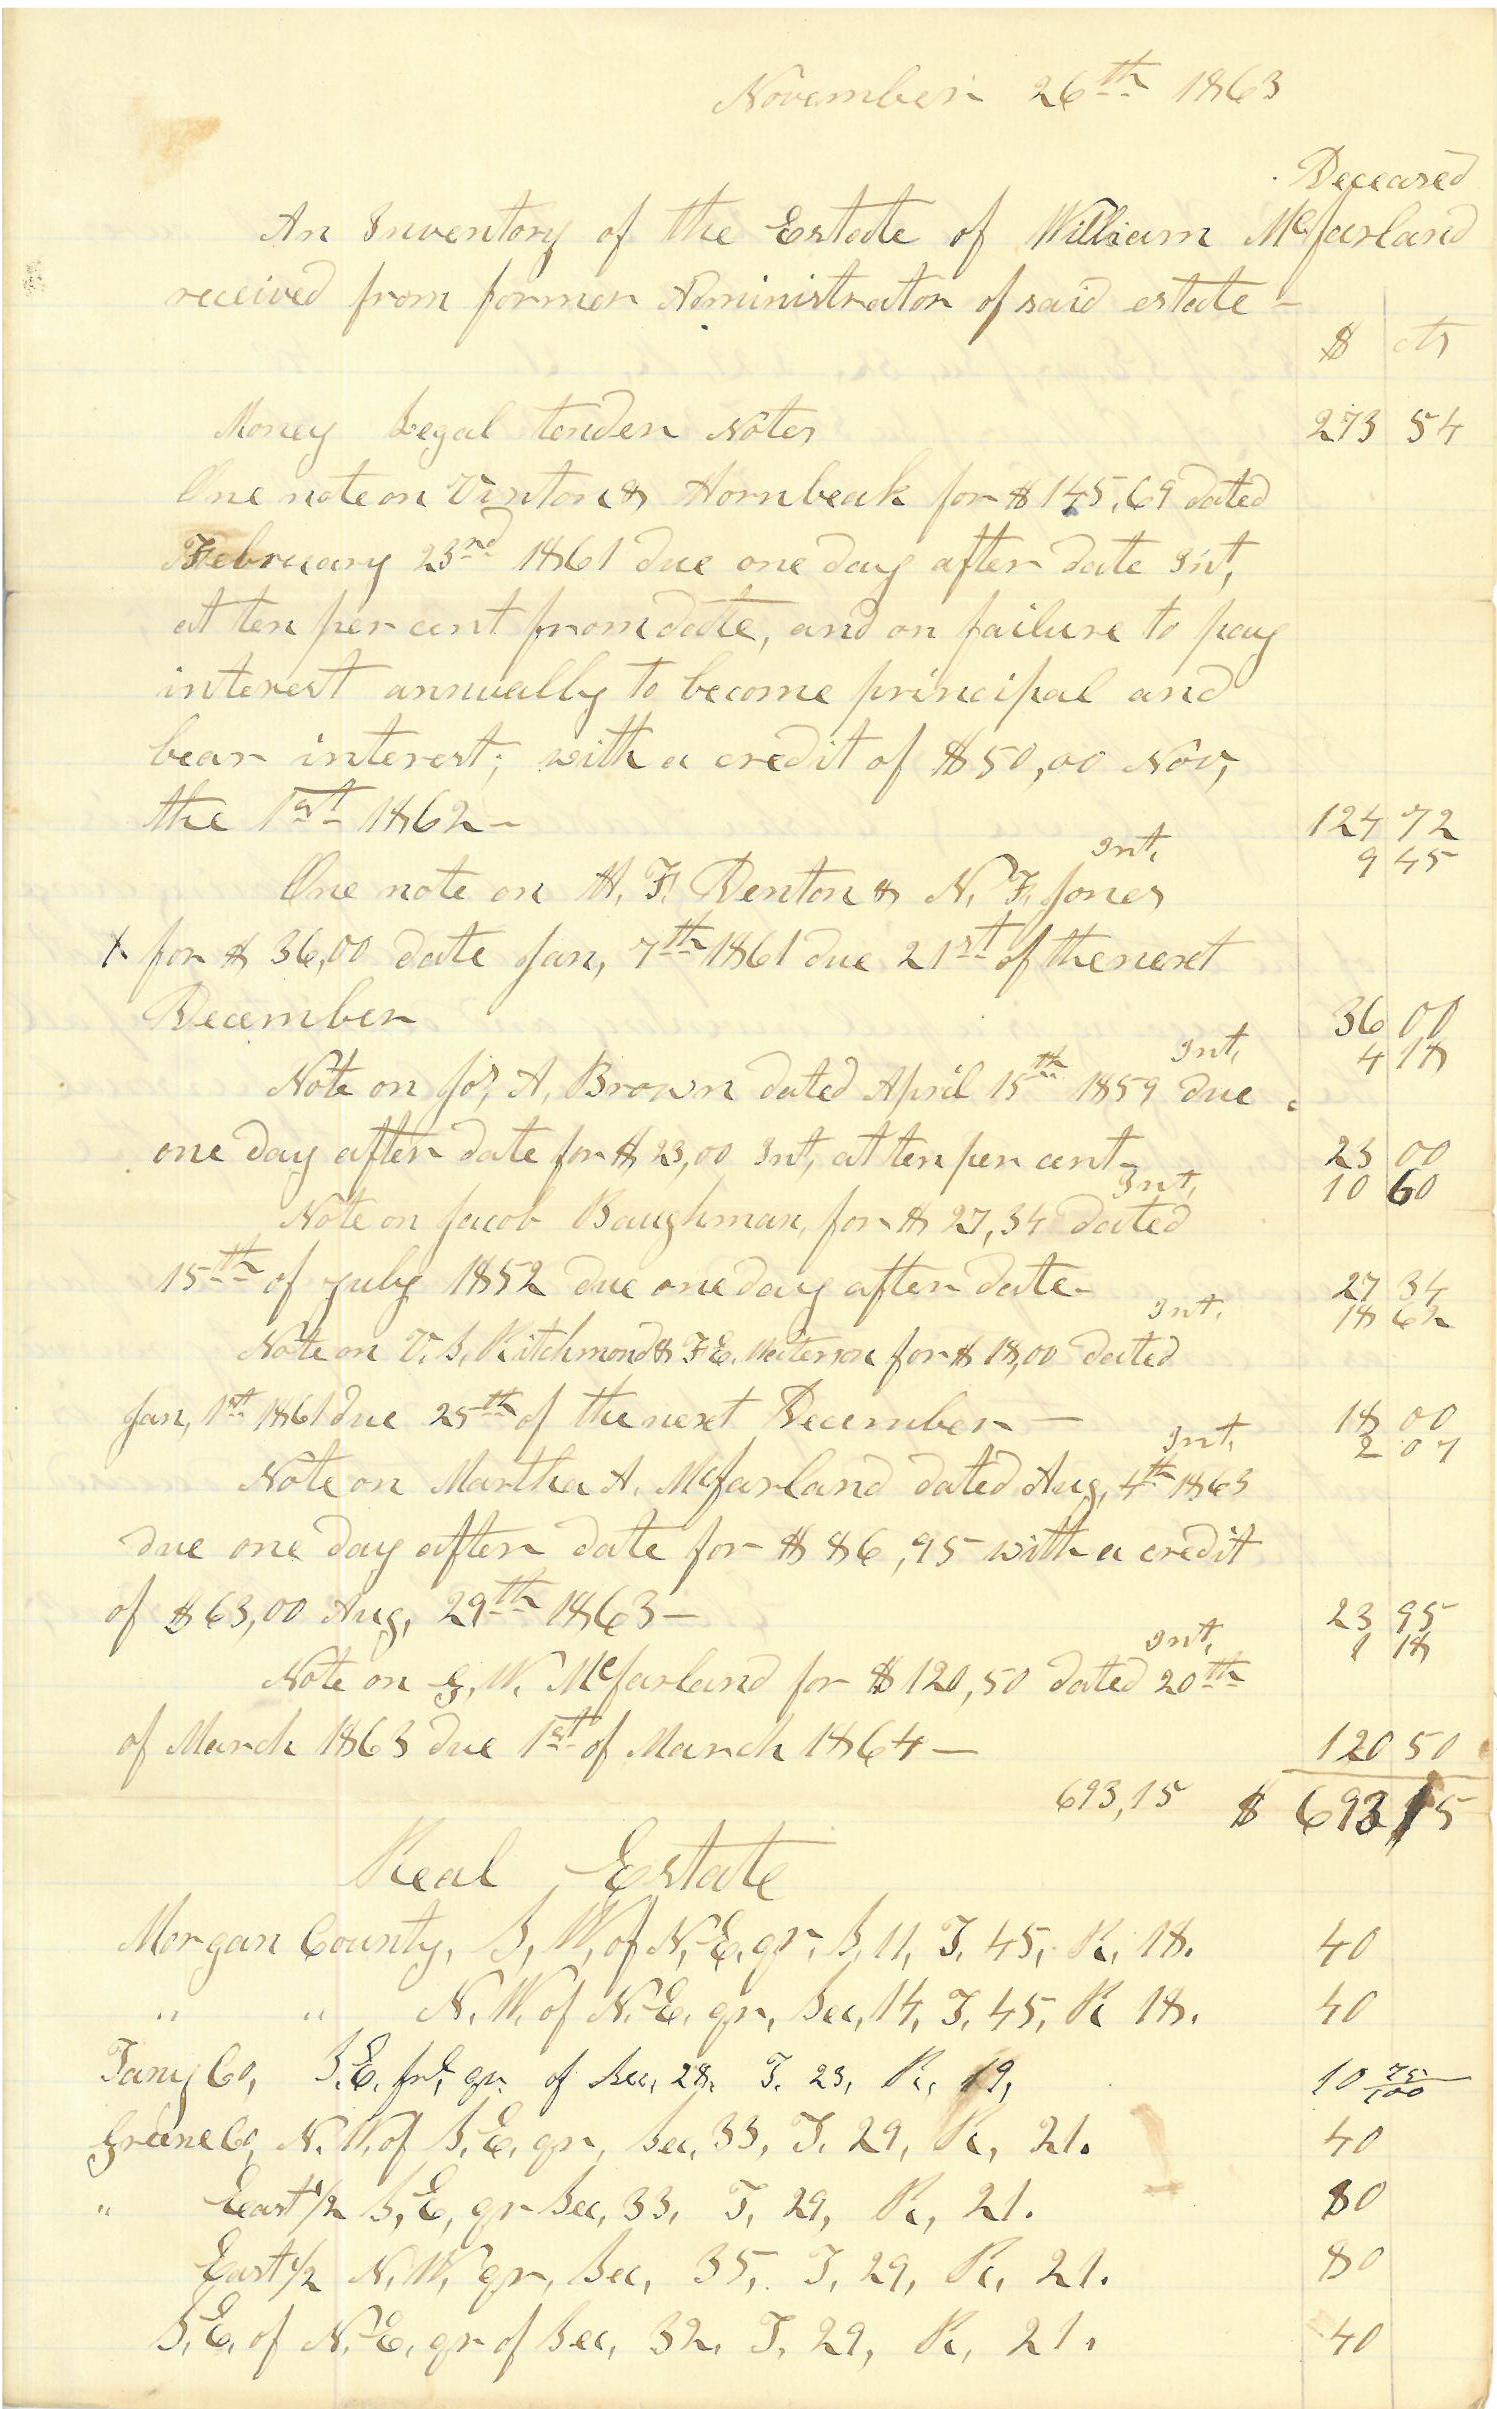 November 26th 1863
Deceased
An Inventory of the Estate of William McFarland
received from former Administrator of said estate –
$ cts
Money Legal tender Notes 273 54
One note on Vinton & Hornbeak for $145,69 dated
February 23rd 1861 due one day after date Int,
at ten per cent from date, and on failure to pay
interest annually to become principal and
bear interest; with a credit of $50,00 Nov,
the 1st 1862– 124 72
Int, 9 45
One note on H. F. Denton & N. F. Jones
x for $36,00 date Jan, 7th 1861 due 21st of the next
December 36 00
Int, 4 18
Note on Jos, A, Brown dated April 15th 1859 due
one day after date for $23,00 Int, at ten per cent– 23 00
Int, 10 60
Note on Jacob Baughman, for $27,34 dated
15th of July 1852 due one day after date– 27 34
Int. 18 62
Note on V. S, Ritchmond & F E. for $18,00 dated
Jan, 1st 1861 due 25th of the next December – 18 00
Int, 2 07
Note on Martha A. McFarland dated Aug, 4th 1863
due one day after date for $86,95 with a credit
of $63,00 Aug, 29th 1863 – 23 95
Int, 1 18
Note on G, W. McFarland for $120,50 dated 20th
of March 1863 due 1st of March 1864 – 120 50
693,15 $ 693 15
Real Estate
Morgan County, S, W, of N, E, qr, S, 11, T. 45, R, 18. 40
" " N. W. of N. E. qr, Sec, 14, T, 45, R 18. 40
Tany Co, S. E. frl, qr. of Sec, 28. T. 23, R, 19, 10 75/100
Greene Co, N. W. of S. E. qr, Sec, 33, T. 29, R, 21. 40
" East 1/2 S, E, qr Sec, 33, T, 29, R, 21. 80
East 1/2 N, W, qr, Sec, 35, T, 29, R, 21. 80
S. E. of N. E. qr of Sec, 32. T. 29, R, 21. 40